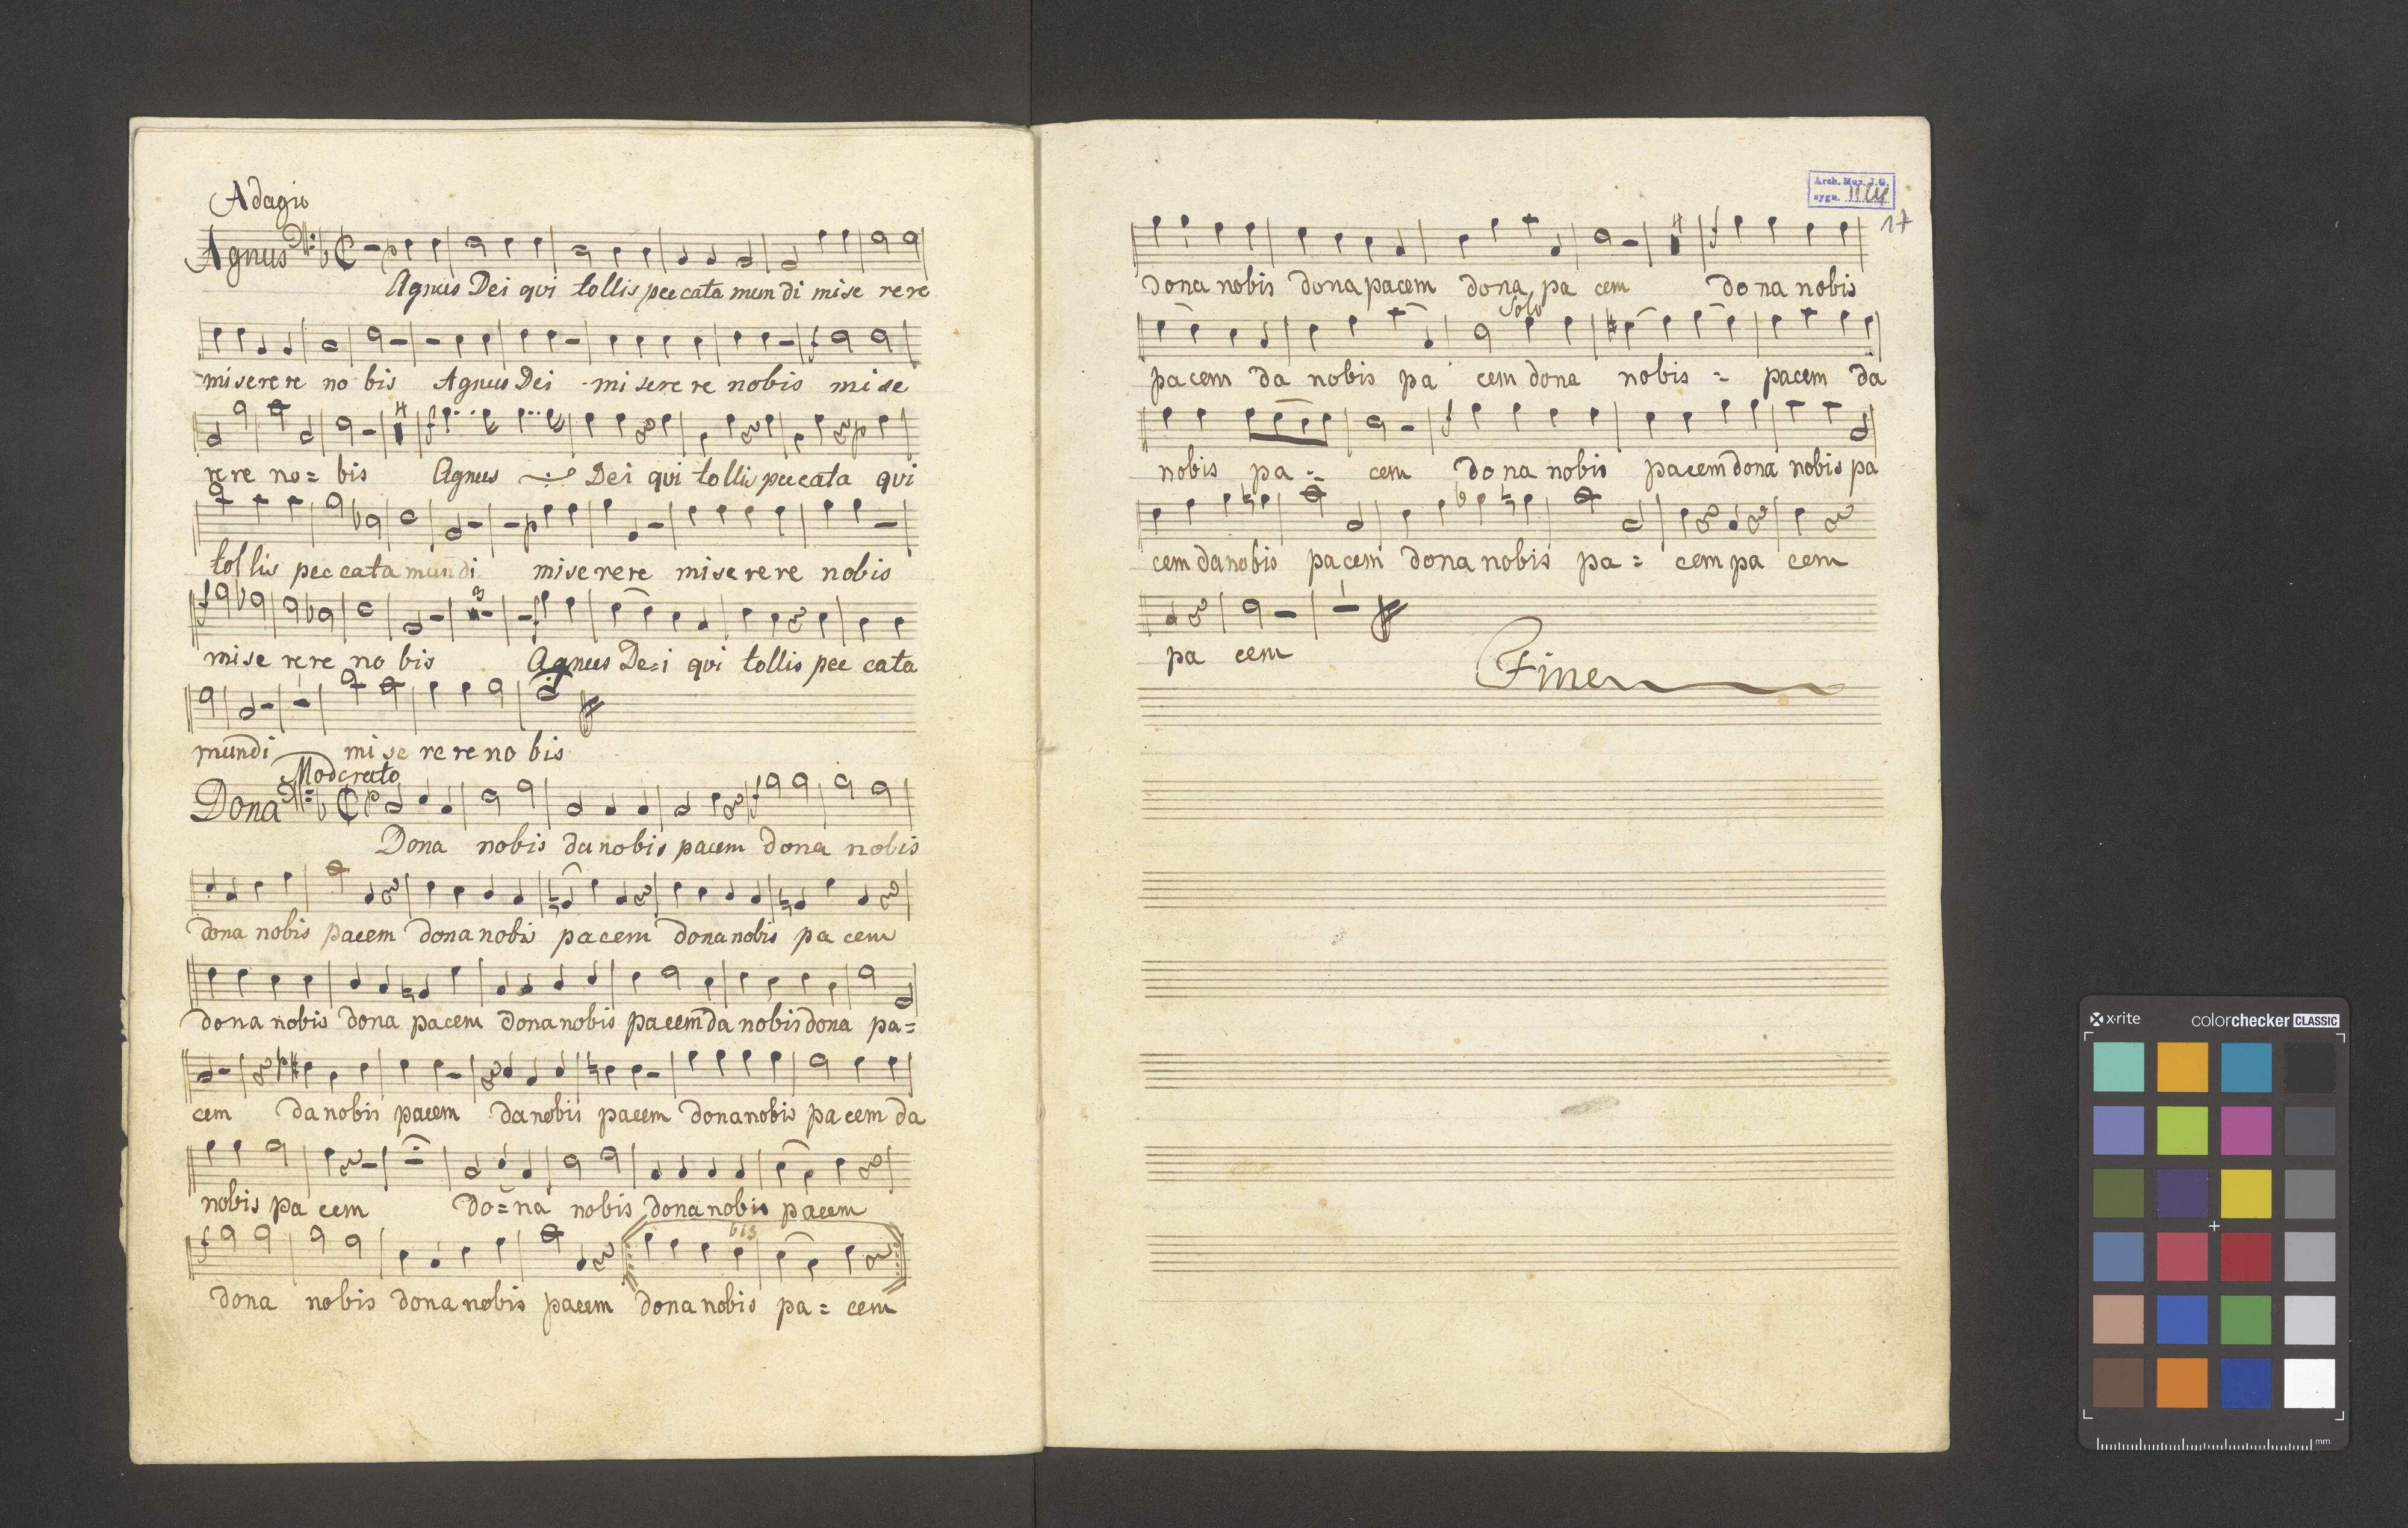 Adagio
Agnus
Agnus Dei qui tollis peccata mundi mise rere
miserere no bis Agnus Dei mi sere re nobis mi se
4
re re no= bis Agnus Dei qui tollis peccata qui
tol lis pec cata mundi miserere mi se re re nobis
3
mi se re re no bis Agnus De=i qui tollis pec cata
mundi mi se re re no bis
Moderato
Dona
Dona nobis da nobis pacem dona nobis
dona nobis pacem dona nobis pa cem dona nobis pa cem
dona nobis dona pacem dona nobis pacem da nobis dona pa=
cem da nobis pacem da nobis pacem dona nobis pa cem da
nobis pa cem Do=na nobis dona nobis pacem
bis
dona nobis dona nobis pacem dona nobis pa= cem
Arch. Muz. J.G.
sygn.
17
4
dona nobis dona pacem dona pa cem do na nobis
Solo
pa cem da nobis pa cem dona nobis = pacem da
nobis pa= cem do na nobis pacem dona nobis pa
cem da nobis pa cem dona nobis pa= cem pa cem
pa cem
Fine
x·rite colorchecker CLASSIC
mm